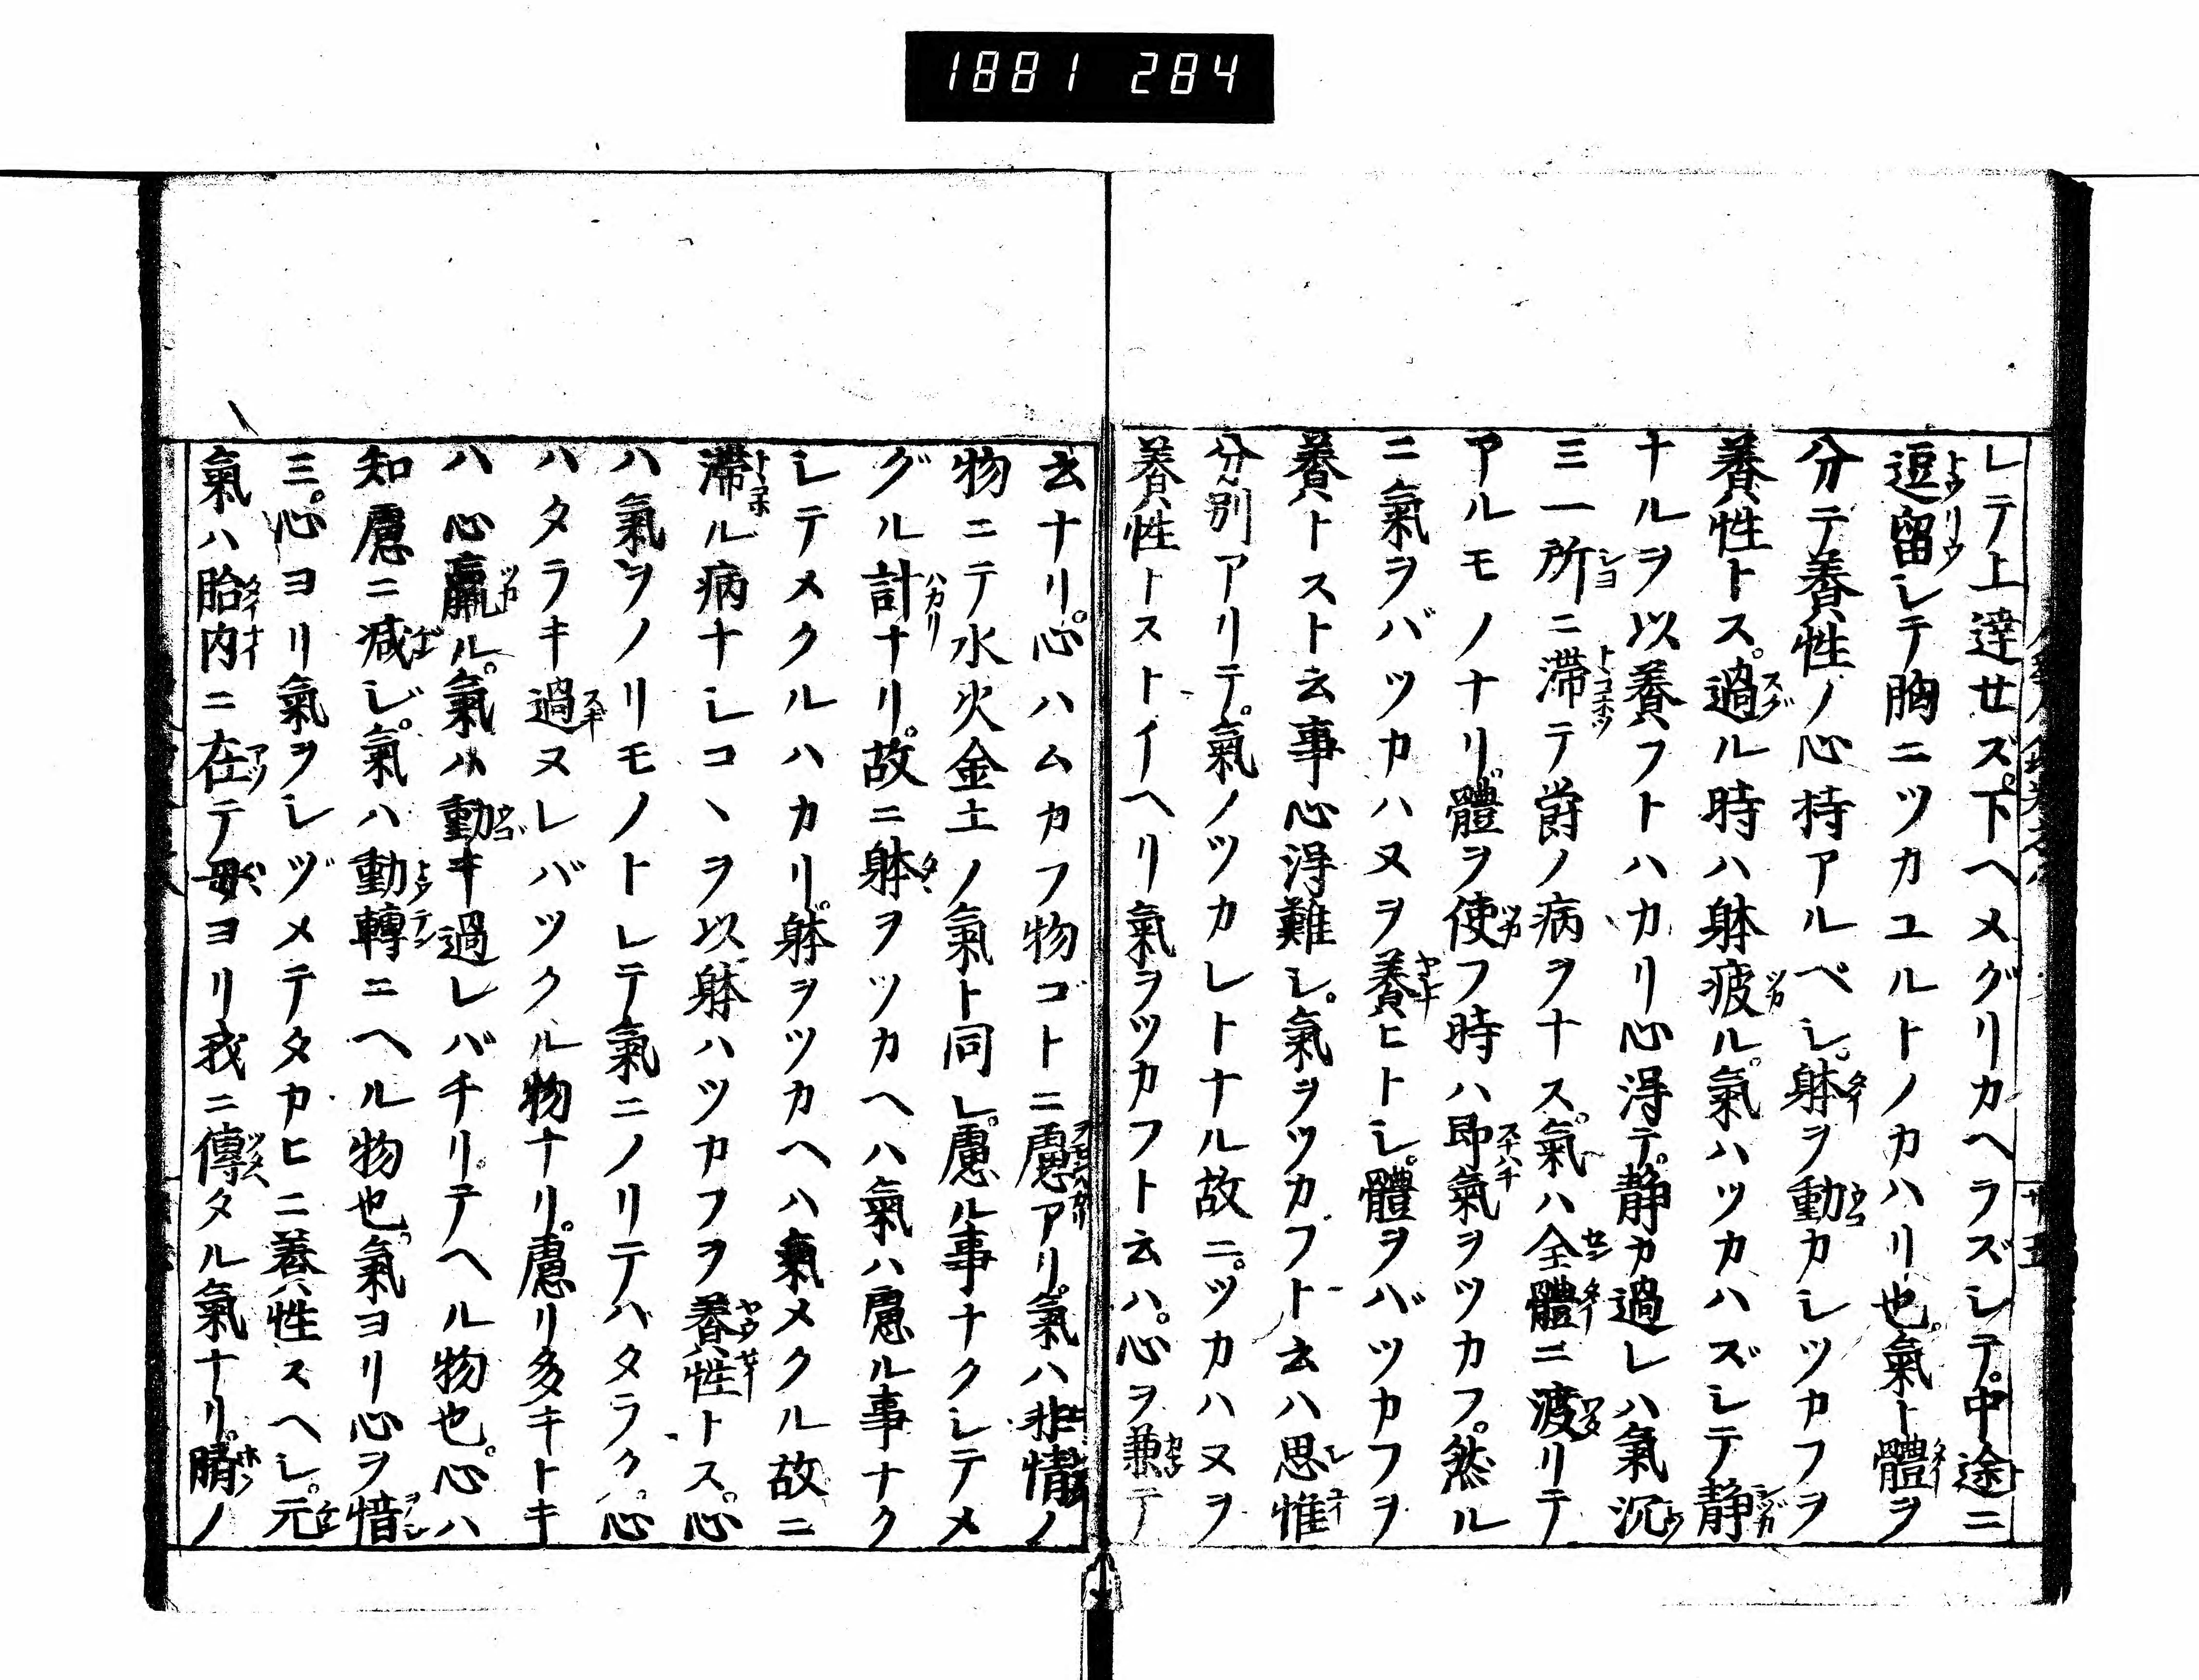 1881 284
シテ上達セズ。下ヘメグリカヘラズシテ。中途ニ
逗留シテ胸ニツカユルトノカハリ也。氣ト體ヲ
分テ養性ノ心持アルベシ。躰ヲ動カシツカフヲ
養性トス。過ル時ハ躰疲ル。氣ハツカハズシテ静
ナルヲ以養フトハカリ心得テ。静カ過レハ氣沉
ミ一所ニ滞テ欝ノ病ヲナス。氣ハ全體ニ渡リテ
アルモノナリ。體ヲ使フ時ハ即氣ヲツカフ。然ル
ニ氣ヲバツカハヌヲ養ヒトシ。體ヲバツカフヲ
養トスト云事心得難シ。氣ヲツカフト云ハ思惟
分別アリテ。氣ノツカレトナル故ニ。ツカハヌヲ
養性トストイヘリ氣ヲツカフト云ハ。心ヲ兼テ
云ナリ。心ハムカフ物ゴトニ慮アリ。氣ハ非情ノ
物ニテ水火金土ノ氣ト同シ。慮ル事ナクシテメ
グル計ナリ。故ニ躰ヲツカヘハ氣ハ慮ル事ナク
シテメクルハカリ。躰ヲツカヘハ氣メクル故ニ
滞ル病ナシコヽヲ以躰ハツカフヲ養性トス。心
ハ氣ヲノリモノトシテ氣ニノリテハタラク。心
ハタラキ過ヌレバツクル物ナリ。慮リ多キトキ
ハ心羸ル。氣ハ動キ過レバチリテヘル物也。心ハ
知慮ニ減ジ。氣ハ動轉ニヘル物也。氣ヨリ心ヲ愔
ミ。心ヨリ氣ヲシヅメテタカヒニ養性スヘシ。元
氣ハ胎内ニ在テ母ヨリ我ニ傳タル氣ナリ。臍ノ